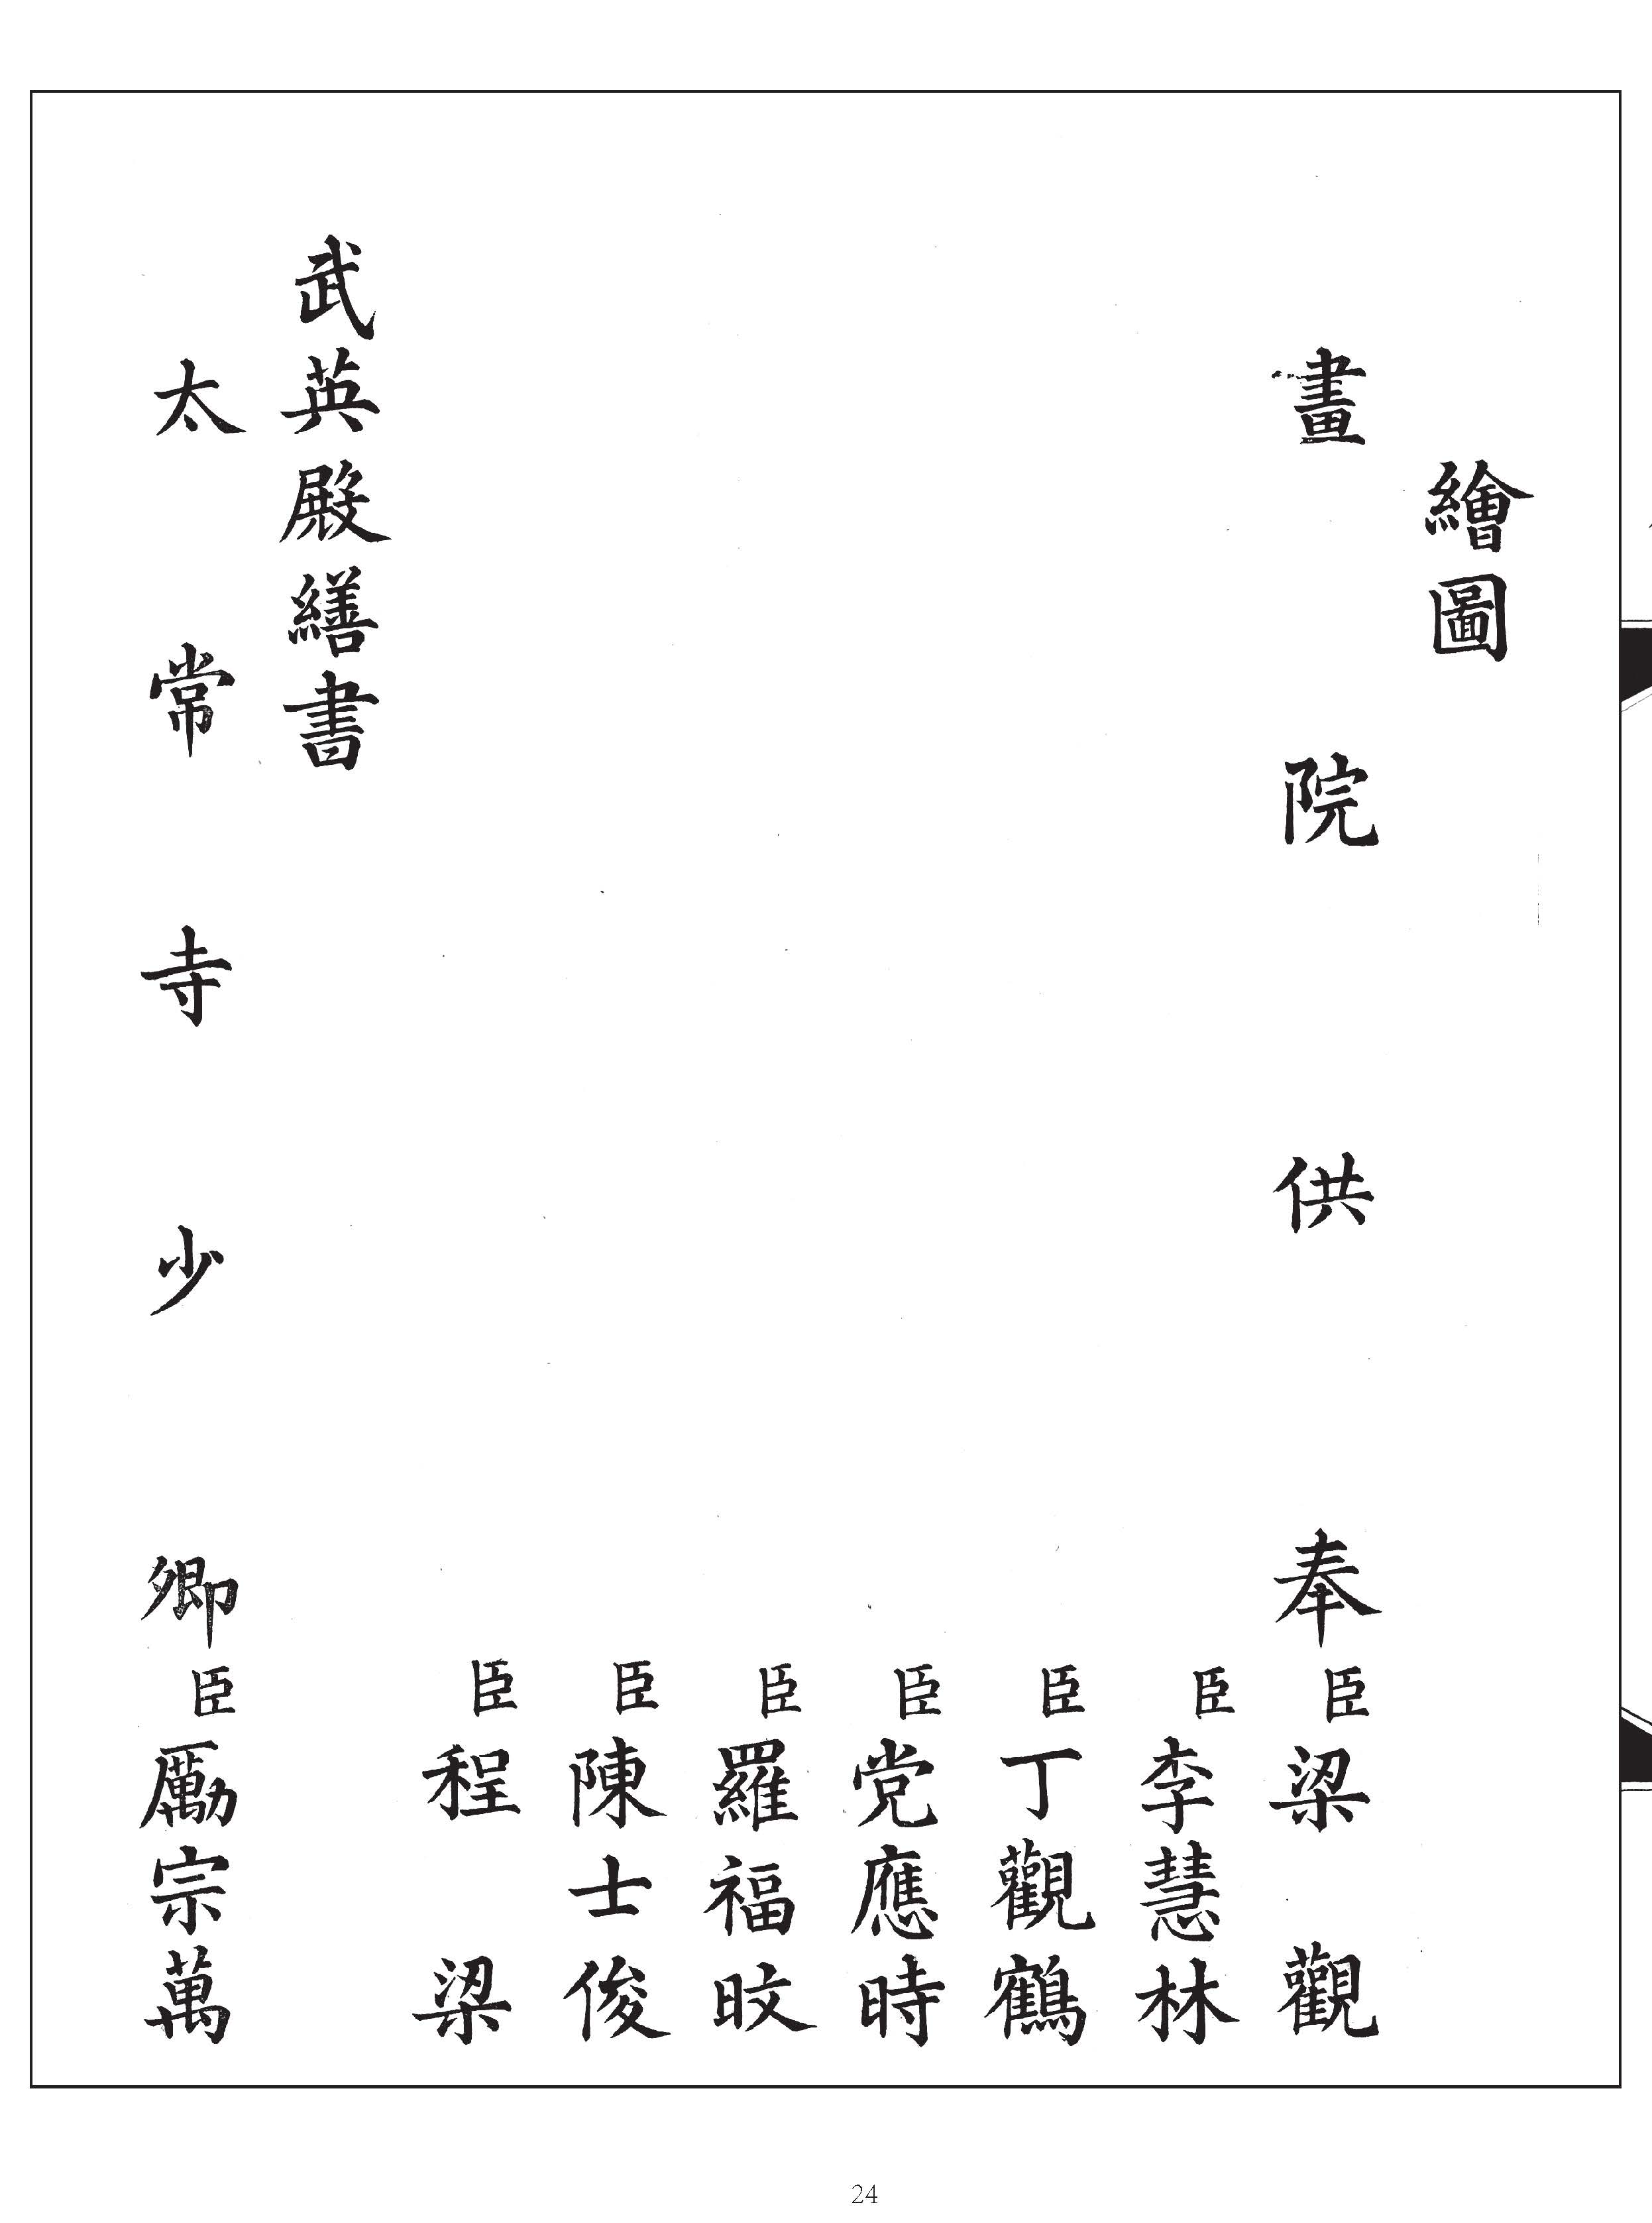 繪圖
畫院供奉臣梁觀
臣李慧林
臣丁觀鶴
臣党應時
臣羅福旼
臣陳士俊
臣程梁
武英殿繕書
太常寺少卿臣勵宗萬
24